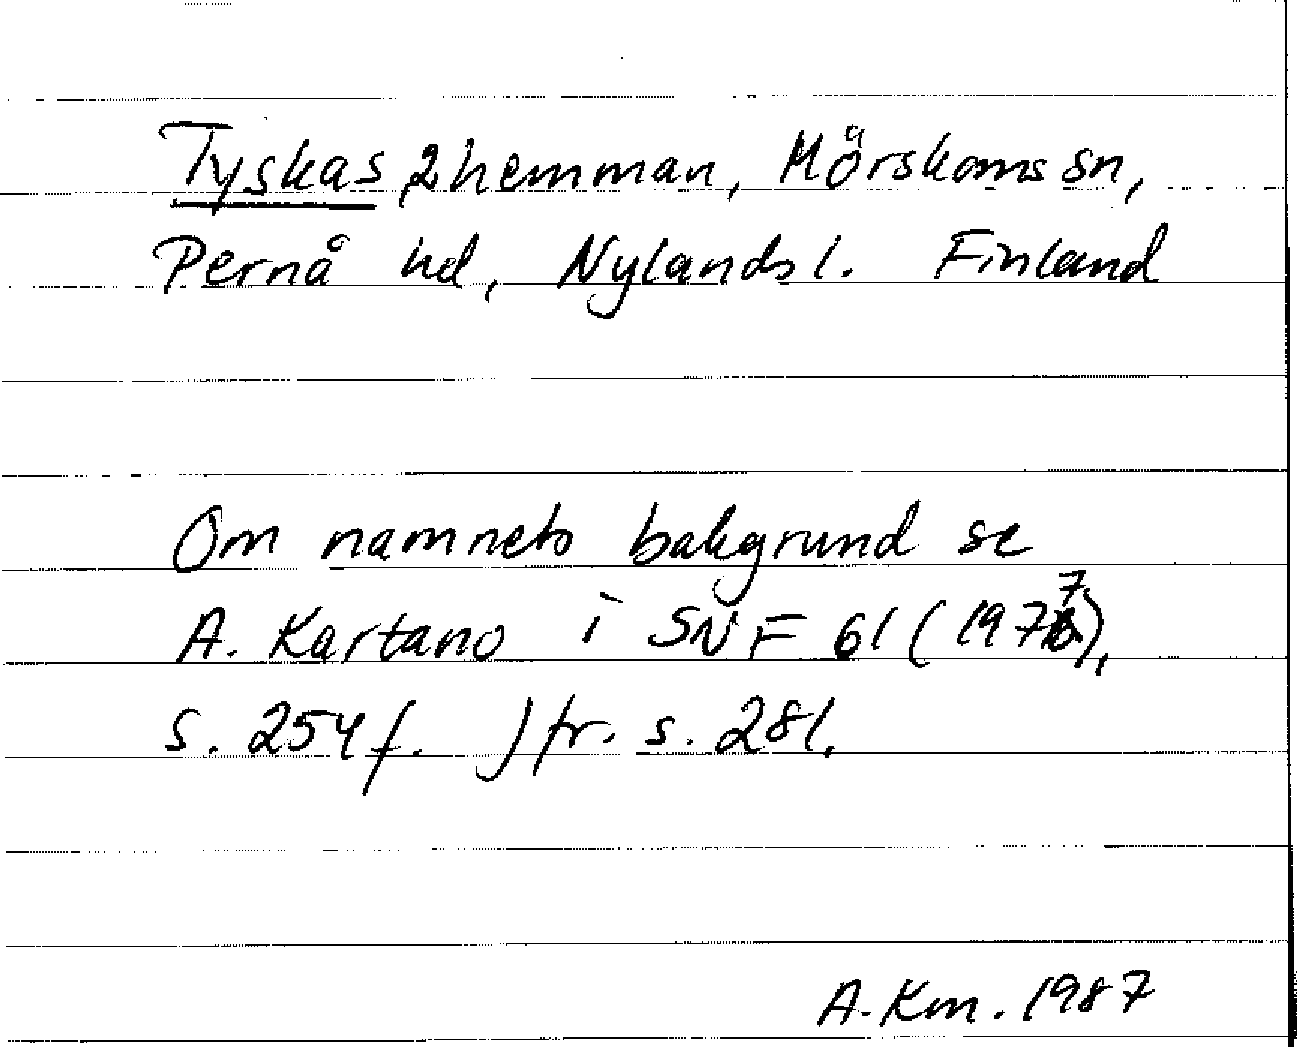 Tyskas 2 hemman, Mörskoms sn,
Pernå hd, Nylands l. Finland
Om namnets bakgrund se
A. Kartano i SNF 61 (1977),
s. 254 f. Jfr. s. 281.
A. Km. 1987